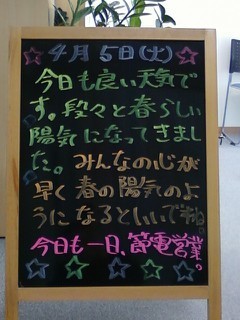 4月5日(火)
今日も良い天気で
す。段々と春らしい
陽気になってきまし
た。みんなの心が
早く春の陽気のよ
うになるといいですね。
今日も一日、節電営業。